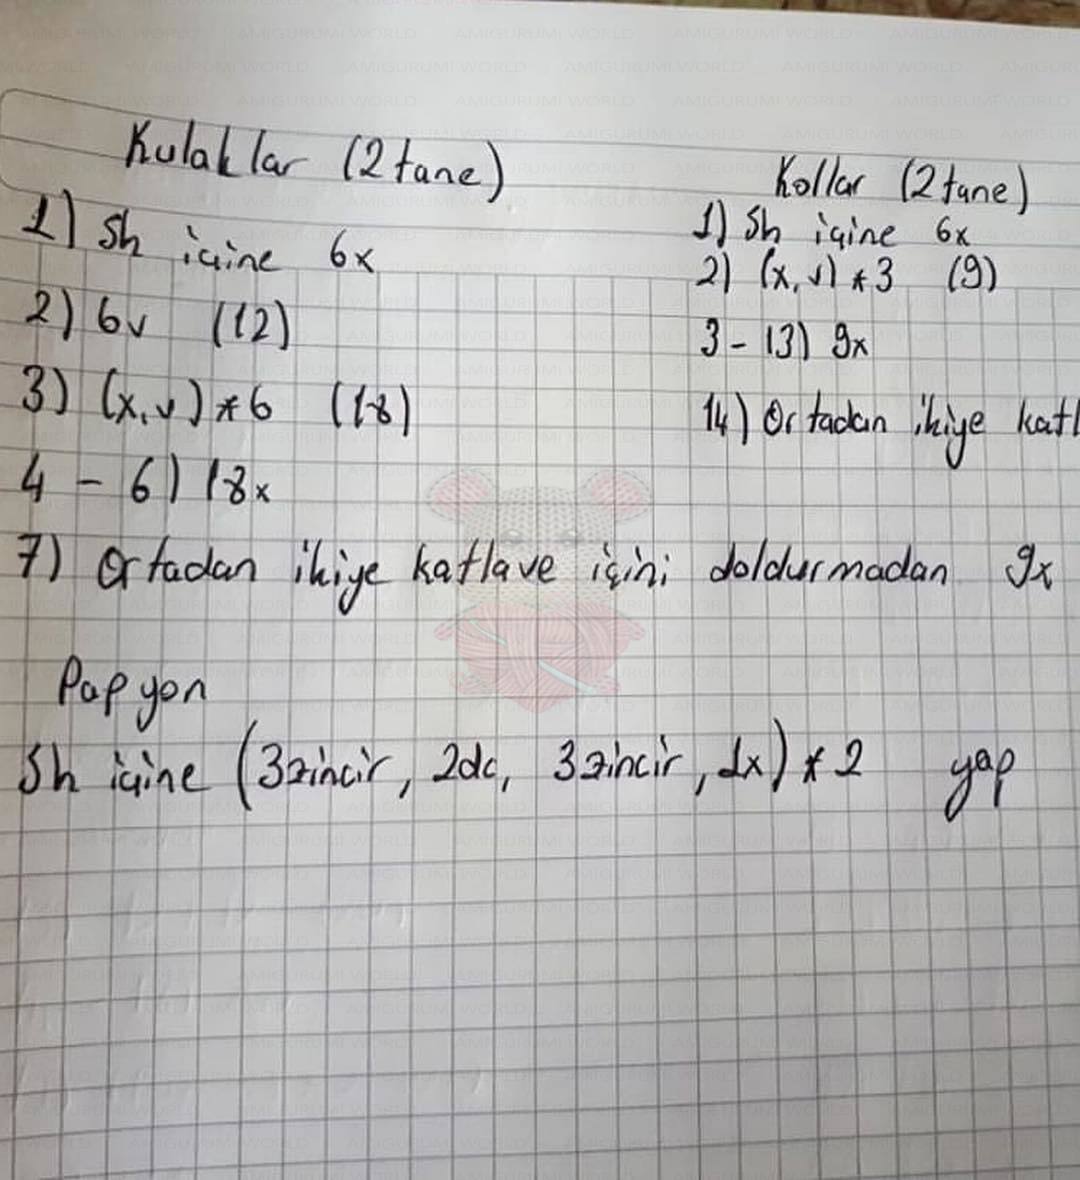 Kulaklar (2 tane)
1) Sh içine 6x
2) 6v (12)
3) (x, v) * 6 (18)
4 - 6) 18x
7) Ortadan ikiye katlave içini doldurmadan 9x
Kollar (2 tane)
1) Sh içine 6x
2) (x, v) * 3 (9)
3 - 13) 9x
14) Ortadan ikiye katl
Papyon
Sh içine (3zincir, 2dc, 3zincir, 1x) * 2 yap
AMIGURUMI WORLD